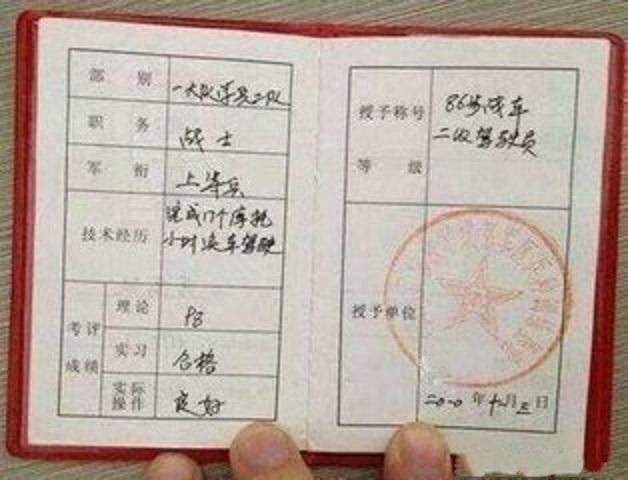 部别
一大队学员二队
职务
战士
军衔
上等兵
技术经历
完成17个摩托
小时汽车驾驶
考评
成绩
理论
98
实习
合格
实际
操作
良好
授予称号
86步战车
二级驾驶员
等级
授予单位
二0一0年十二月三日